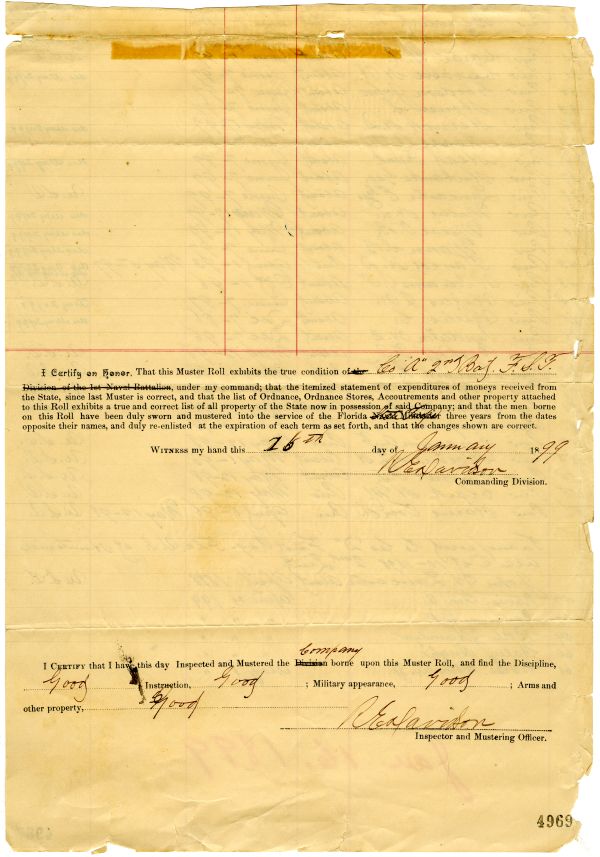 I Certify on Honor, That this Muster Roll exhibits the true condition of the Co "A" 2nd Bat. F. S. T.
Division of the 1st Naval Battalion, under my command; that the itemized statement of expenditures of moneys received from
the State, since last Muster is correct, and that the list of Ordnance, Ordnance Stores, Accoutrements and other property attached
to this Roll exhibits a true and correct list of all property of the State now in possession of said Company; and that the men borne
on this Roll have been duly sworn and mustered into the service of the Florida three years from the dates
opposite their names, and duly re-enlisted at the expiration of each term as set forth, and that the changes shown are correct.
Witness my hand this 16th day of January 1899
R E Davidson
Commanding Division.
Company
I Certify that I have this day Inspected and Mustered the Division borne upon this Muster Roll, and find the Discipline,
Good Instruction, Good ; Military appearance, Good ; Arms and
other property, Good
R E Davidson
Inspector and Mustering Officer.
4969